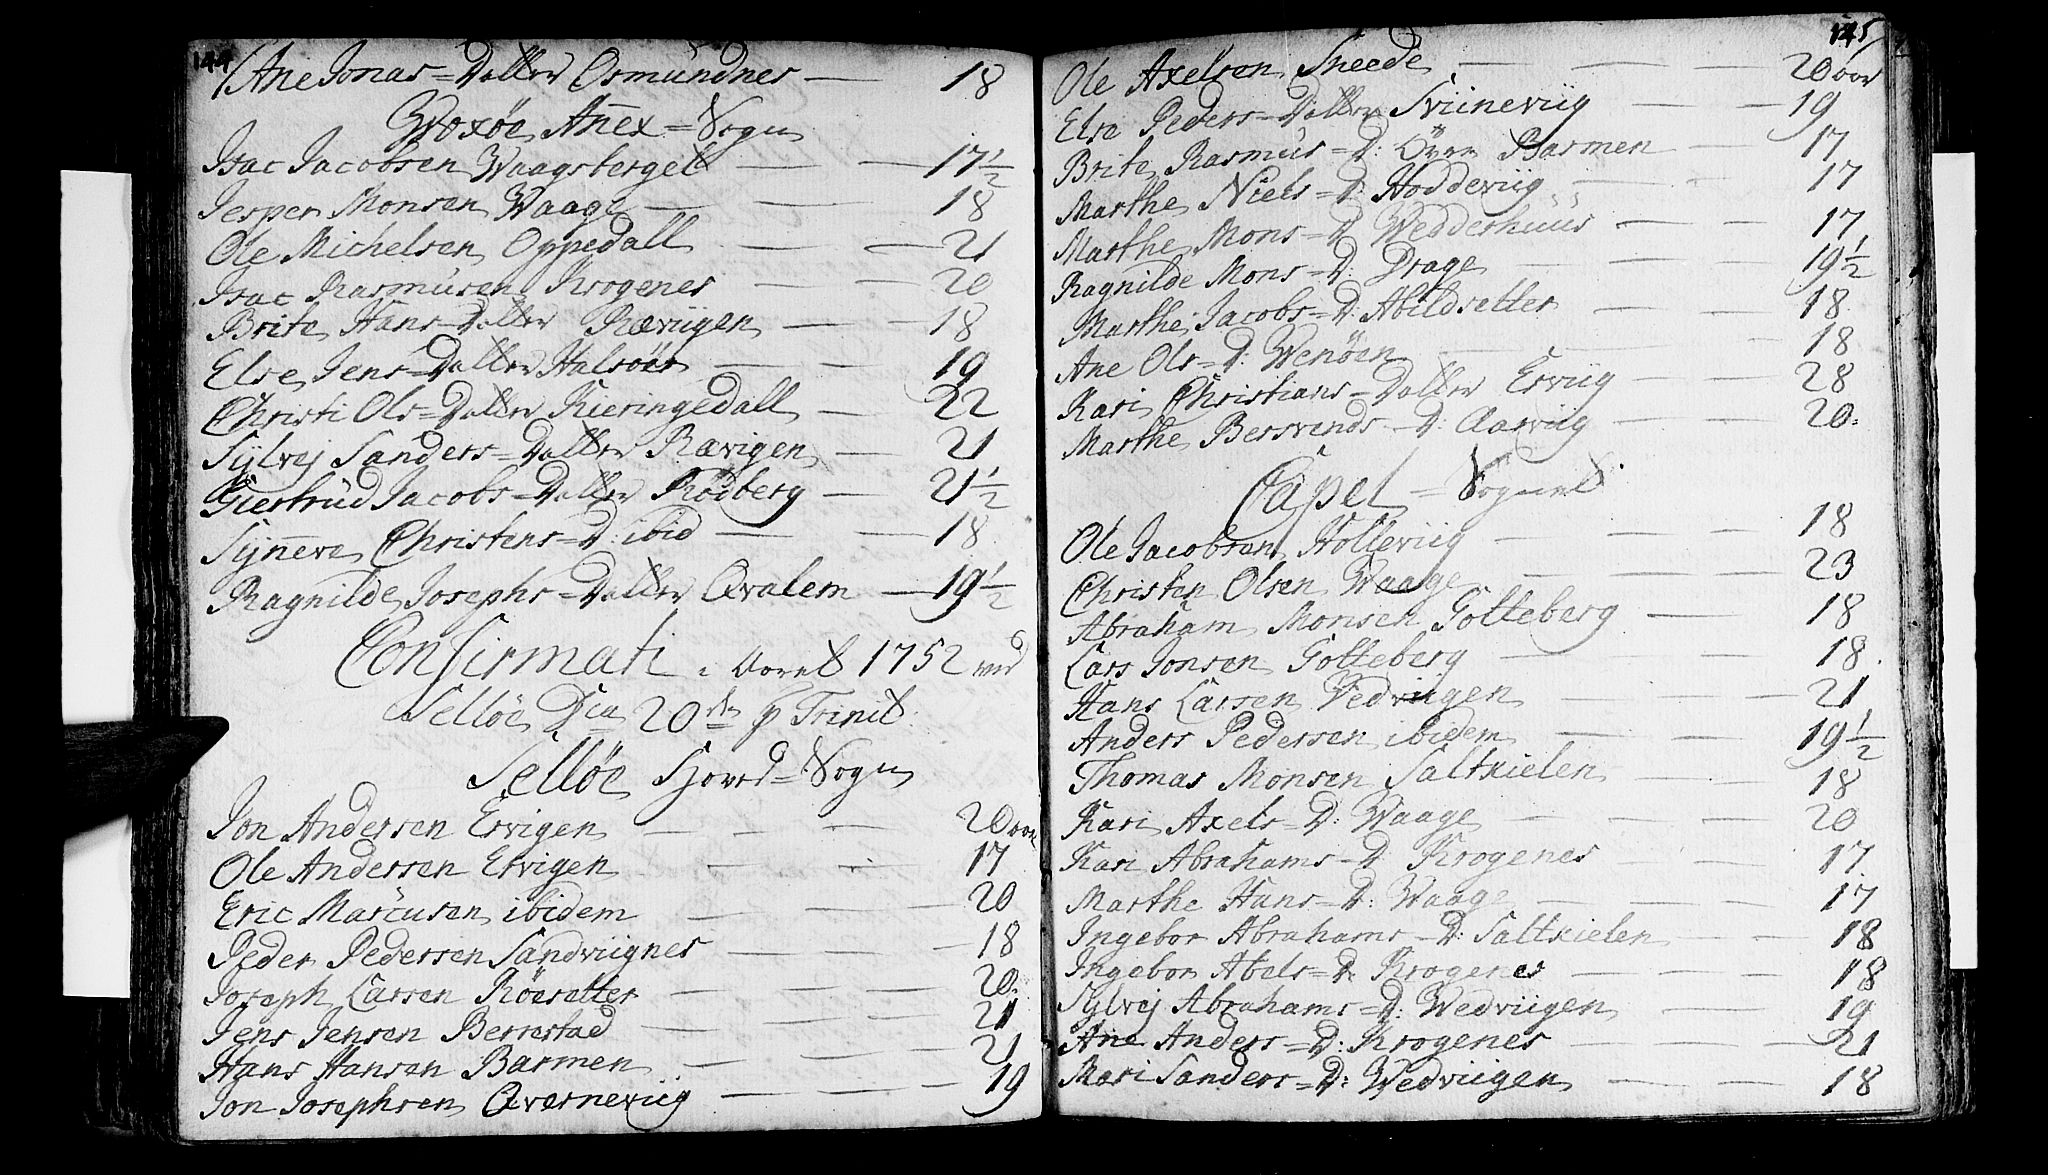 144
Ane Jonas=Datter Osmundnes — 18
Woxøe Anex=Sogn
Isac Jacobsen Waagsberget — — 17½
Jesper Monsen Waage — — 18
Ole Michelsen Oppedall — — 21
Isac Rasmusen Krogenes — — 20
Brite Hans=Datter Ræviigen — — 18
Else Jens=Datter Halsøer — — 19
Christi Ols=Datter Kieringedall — 22
Sylvej Sanders=Datter Rævigen — 21
Giertrud Jacobs=Datter Rødberg — 21½
Syneve Christens=D: ibid — — 18
Ragnilde Josephs=Datter Qvalem — 19½
Confirmati i Aaret 1752 ved
Selløe Den 20de p Trinit:
Selløe Hoved=Sogn
Jon Andersen Ervigen — — — 20 aar
Ole Andersen Ervigen — — — 17
Eric Marcusen ibidem — — — 20
Peder Pedersen Sandviignes — — — 18
Joseph Larsen Røesetter — — — 20.
Jens Jensen Berrestad — — — 21
Hans Hansen Barmen — — — 21
Jon Josephsen Qverneviig — — — 19
145
Ole Axelsen Sneede — — — 20 aar
Else Peders=Datter Sviineviig — — 19
Brite Rasmus=D: Øvre Barmen — — 17
Marthe Niels=D: Hoddeviig — — 17
Marthe Mons=D: Wedderhuus — — 17
Ragnilde Mons=D: Drage — — 19½
Marthe Jacobs=D: Abildsetter — — 18.
Ane Ols=D: Wenøen — — 18
Kari Christians=Datter Erviig — — 28
Marthe Bersvends=D: Aarviig — — 20.
Capel=Sognet.
Ole Jacobsen Holleviig — — — 18
Christen Olsen Waage — — — 23
Abraham Monsen Gotteberg — — 18
Lars Jonsen Gotteberg — — — 18.
Hans Larsen Vedviigen — — — 21
Anders Pedersen ibidem — — — 19½
Thomas Monsen Saltkielen — — 18
Kari Axels=D: Waage — — — 20
Kari Abrahams=D: Krogenes — — 17.
Marthe Hans=D: Waage — — — 17
Ingebor Abrahams=D: Saltkielen — — 18
Ingebor Abels=D: Krogenes — — — 18
Sylvej Abrahams=D: Wedviigen — — 19
Ane Anders=D: Krogenes — — — 21
Mari Sanders=D: Wedviigen — — — 18